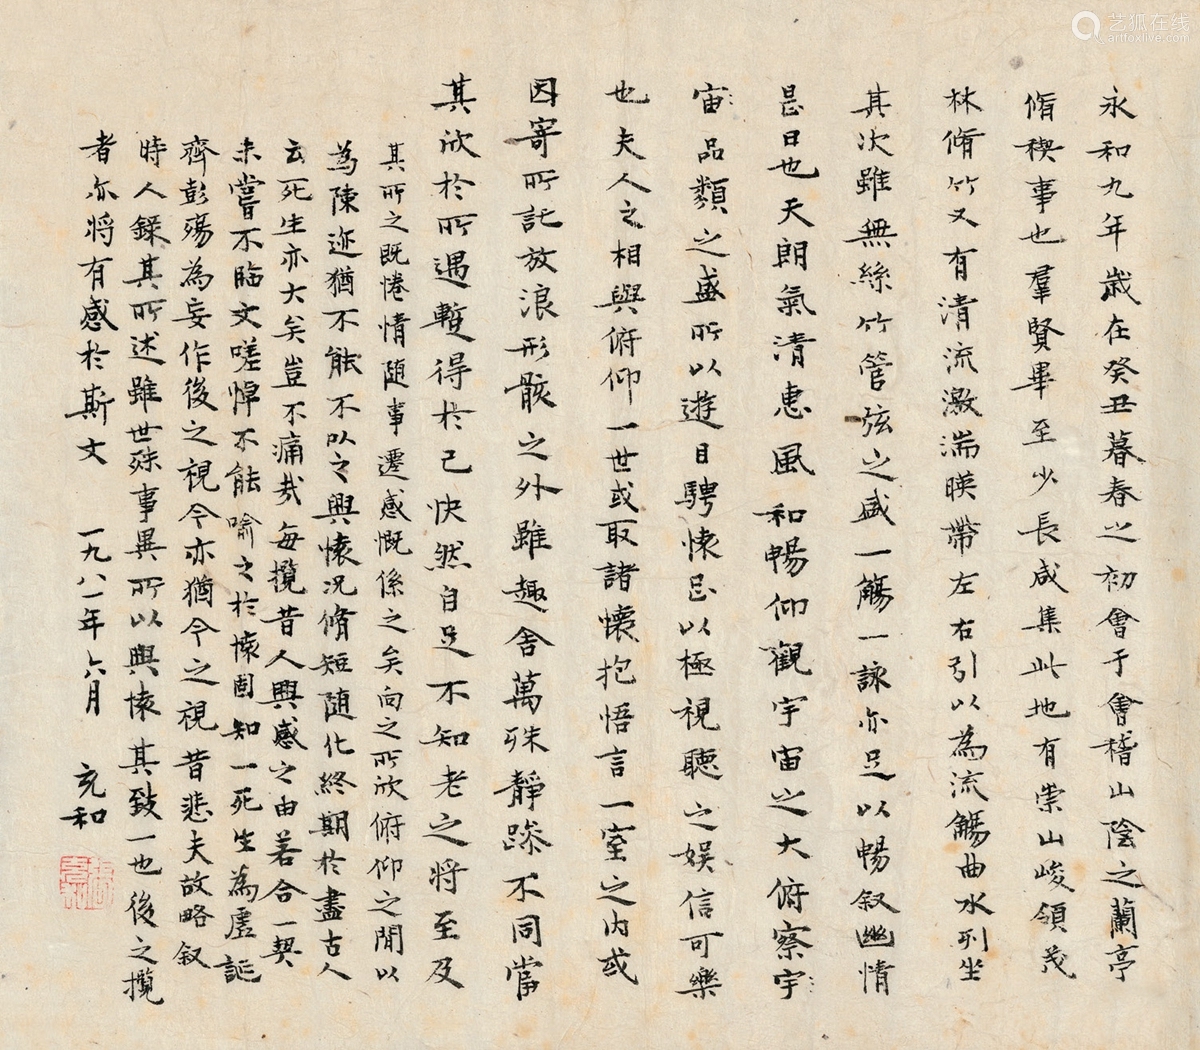 永和九年歲在癸丑暮春之初會于會稽山陰之蘭亭
脩稧事也羣賢畢至少長咸集此地有崇山峻領茂
林脩竹又有清流激湍暎帶左右引以為流觴曲水列坐
其次雖無絲竹管弦之盛一觴一詠亦足以暢叙幽情
是日也天朗氣清惠風和暢仰觀宇宙之大俯察宇
宙品類之盛所以遊目騁懷足以極視聽之娛信可樂
也夫人之相與俯仰一世或取諸懷抱悟言一室之內或
因寄所託放浪形骸之外雖趣舍萬殊靜躁不同當
其欣於所遇蹔得於己快然自足不知老之將至及
其所之既惓情随事遷感慨係之矣向之所欣俯仰之閒以
為陳迹猶不能不以之興懷況脩短随化終期於盡古人
云死生亦大矣豈不痛哉每攬昔人興感之由若合一契
未嘗不臨文嗟悼不能喻之於懷固知一死生為虛誕
齊彭殤為妄作後之視今亦猶今之視昔悲夫故略叙
時人錄其所述雖世殊事異所以興懷其致一也後之攬
者亦將有感於斯文 一九八一年六月 充和
艺狐在线
artfoxlive.com